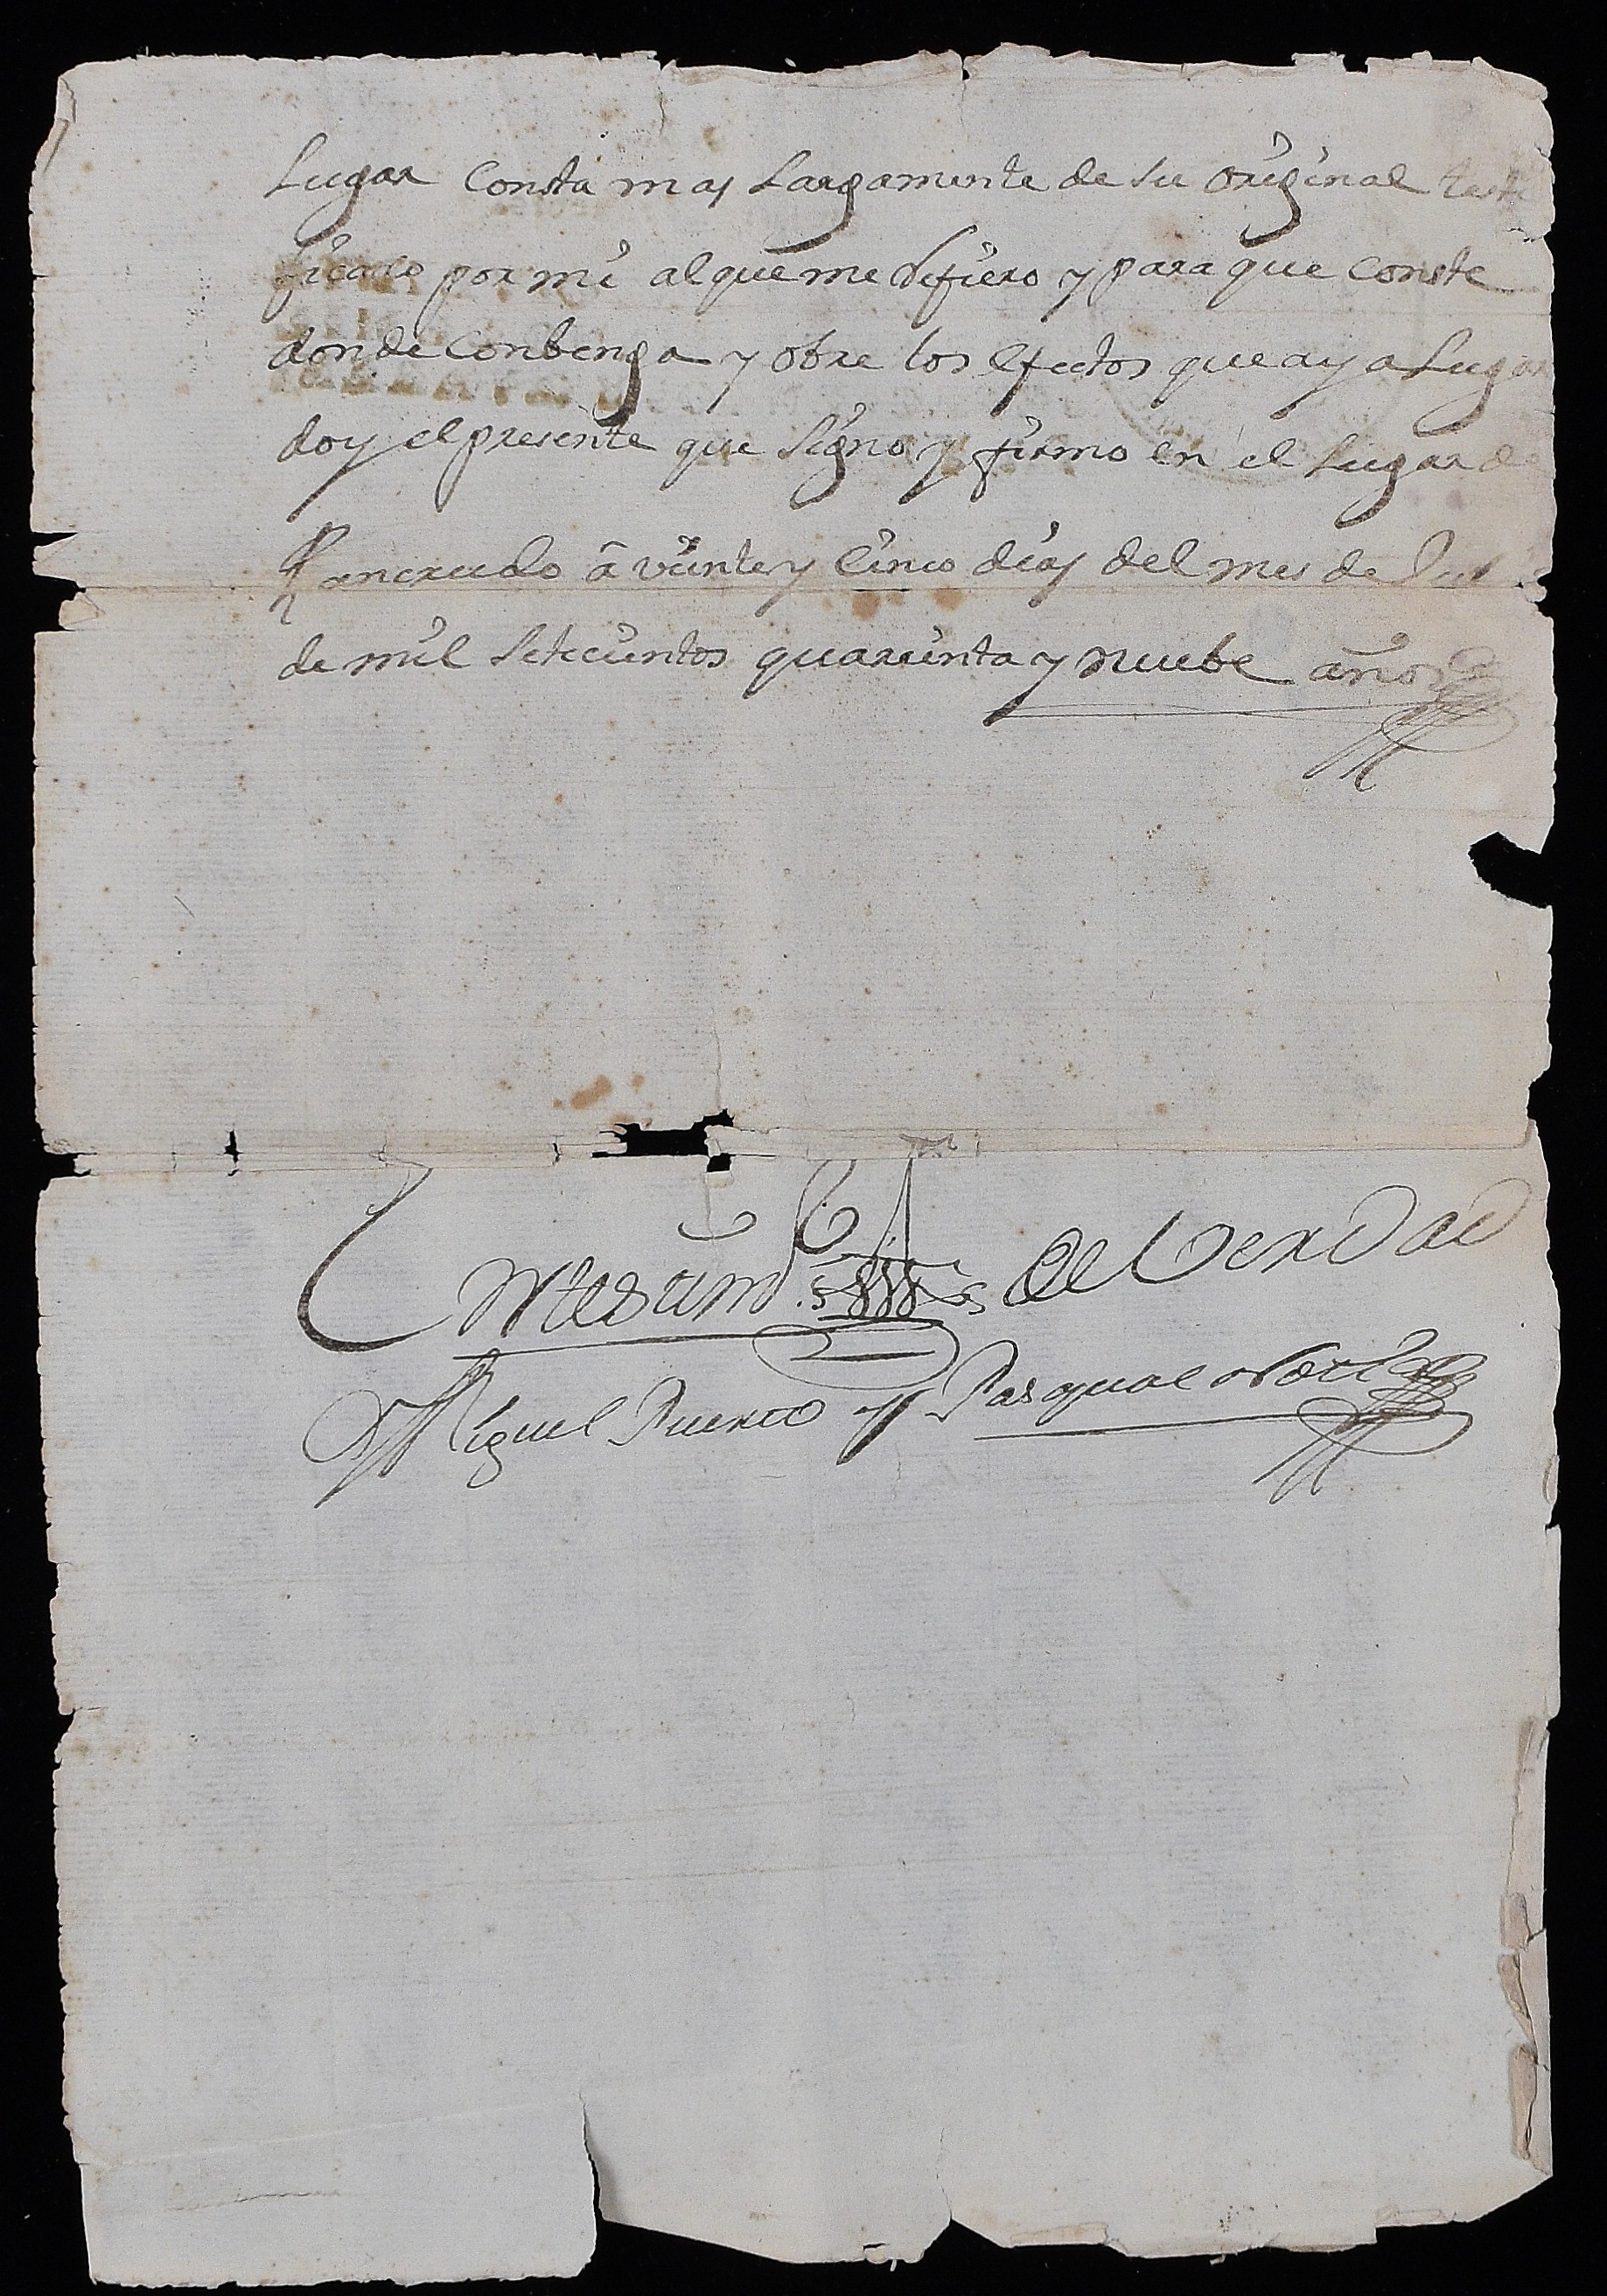 Lugar Consta mas Largamente de su original testi
ficado por mi al que me Refiero y para que Conste
donde Conbenga y obre los efectos que aya Lugar
doy el presente que Signo y firmo en el Lugar de
Rancrudo â veinte y Cinco dias del mes de
de mil Setecientos quarenta y nuebe años
En testim.º de Verdad
Miguel Puerto y Pasqual